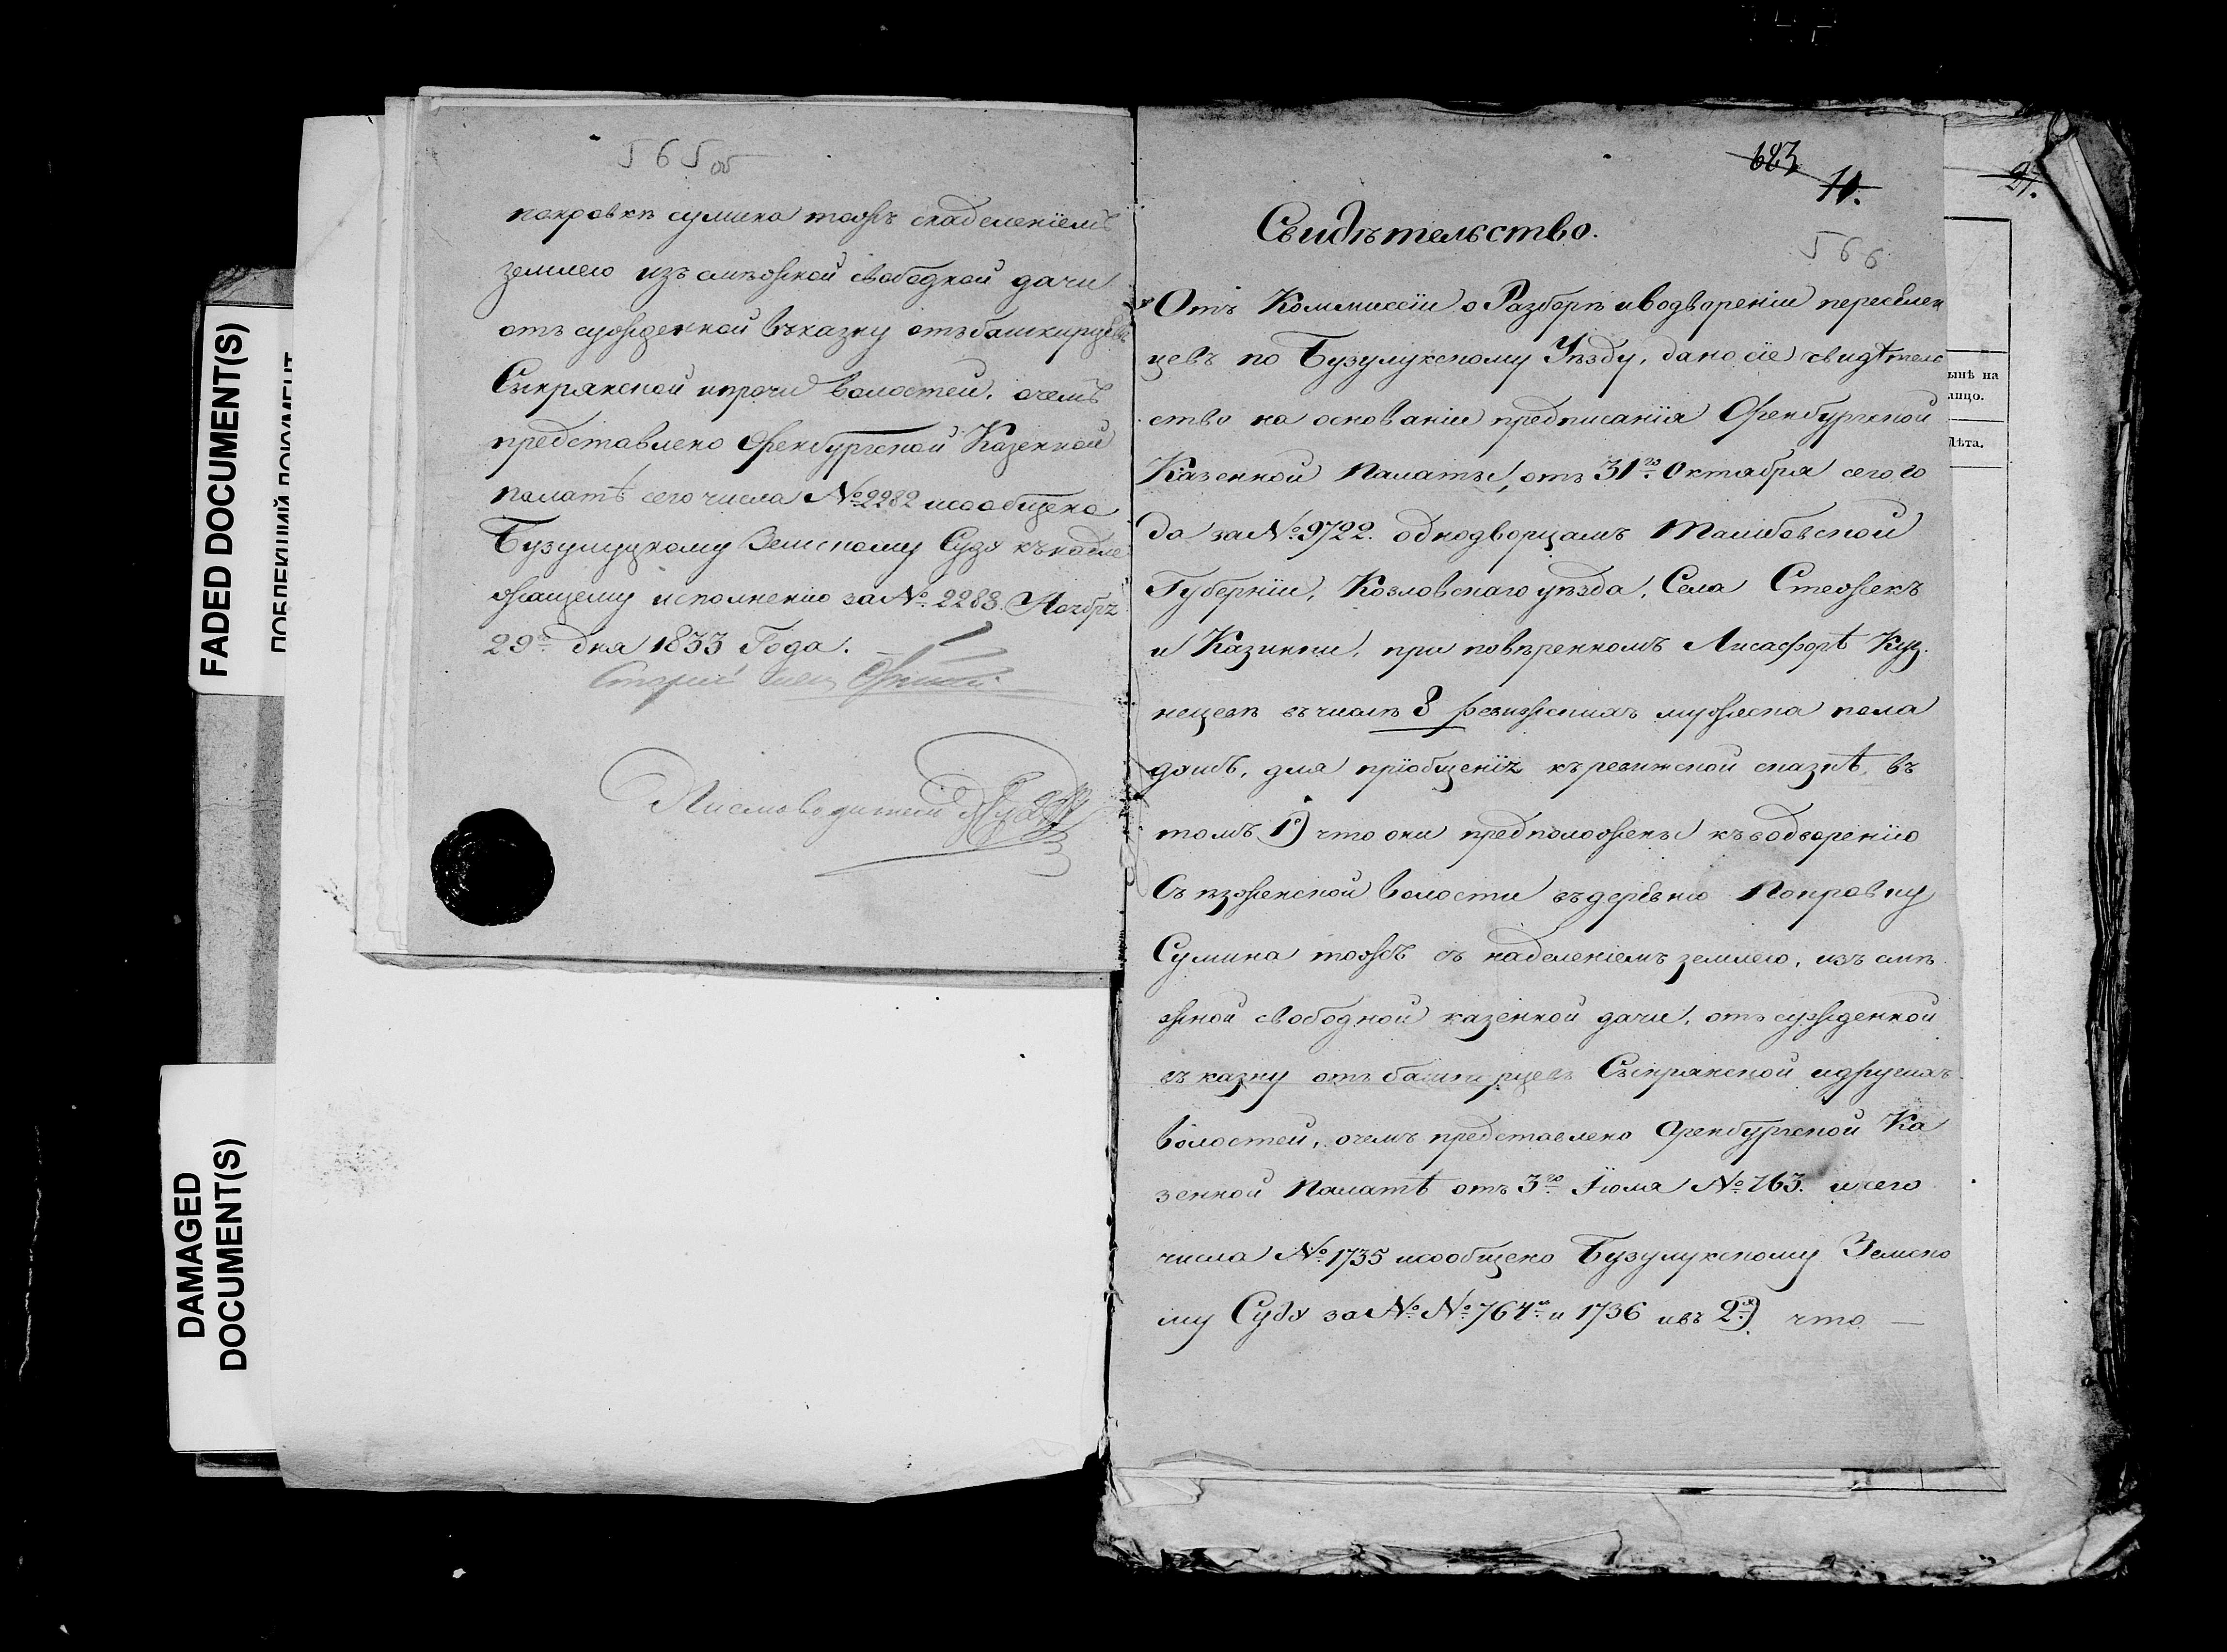 FADED DOCUMENT(S)
DAMAGED
DOCUMENT(S)
565об
покровкѣ сумина тожъ снаделенїемъ
землею изъ смѣжной свободной дачи
отъ сужденной въказну отъбашкирцовъ
Сынрянской ипрочи волостей, очемъ
представлено Оренбургской Казенной
палатѣ сего числа № 2282 исообщено
Бузулуцкому Земскому Суду къ надле
жащему исполненїю за № 2283. Ноября
29го дня 1833 Года.
Старшїй
Писмоводитель
683
11.
21.
566
Свидѣтельство.
Отъ Коммиссїи о Разборѣ иводворенїи переселен
цевъ по Бузулукскому Уѣзду, дано сїе свидѣтелс
ство на основанїи предписанїя Оренбургской
Казенной Палаты, отъ 31го Октября сего го
да за № 9722. однодворцамъ Тамбовской
Губернїи, Козловскаго уѣзда, Села Стежекъ
и Казинки, при повѣренномъ Куз
нецовѣ въчислѣ 8 ревижскихъ мужеска пола
душъ, для прїобщенїя къревижской сказкѣ, въ
томъ 1е) что они предположены къводворенїю
Съѣзженской волости въдеревню Покровку
Сумина тожъ съ наделенїемъ землею, изъ смѣ
жной свободной казенной дачи, отъ сужденной
въ казну отъ башкирцевъ Сынрянской идругихъ
волостей, очемъ представлено Оренбургской Ка
зенной Палатѣ отъ 3го Їюля № 763. исего
числа № 1735 исообщено Бузулукскому Земско
му Суду за №№ 764м и 1736 ивъ 2х) что —
ынѣ на
лицо.
Лѣта.